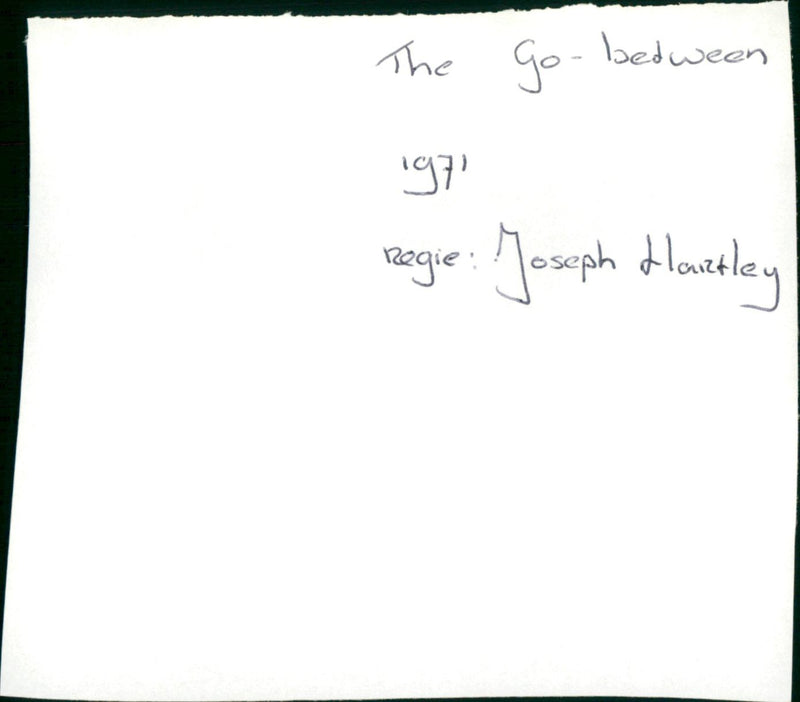 The Go-between
1971
Regie: Joseph Hartley